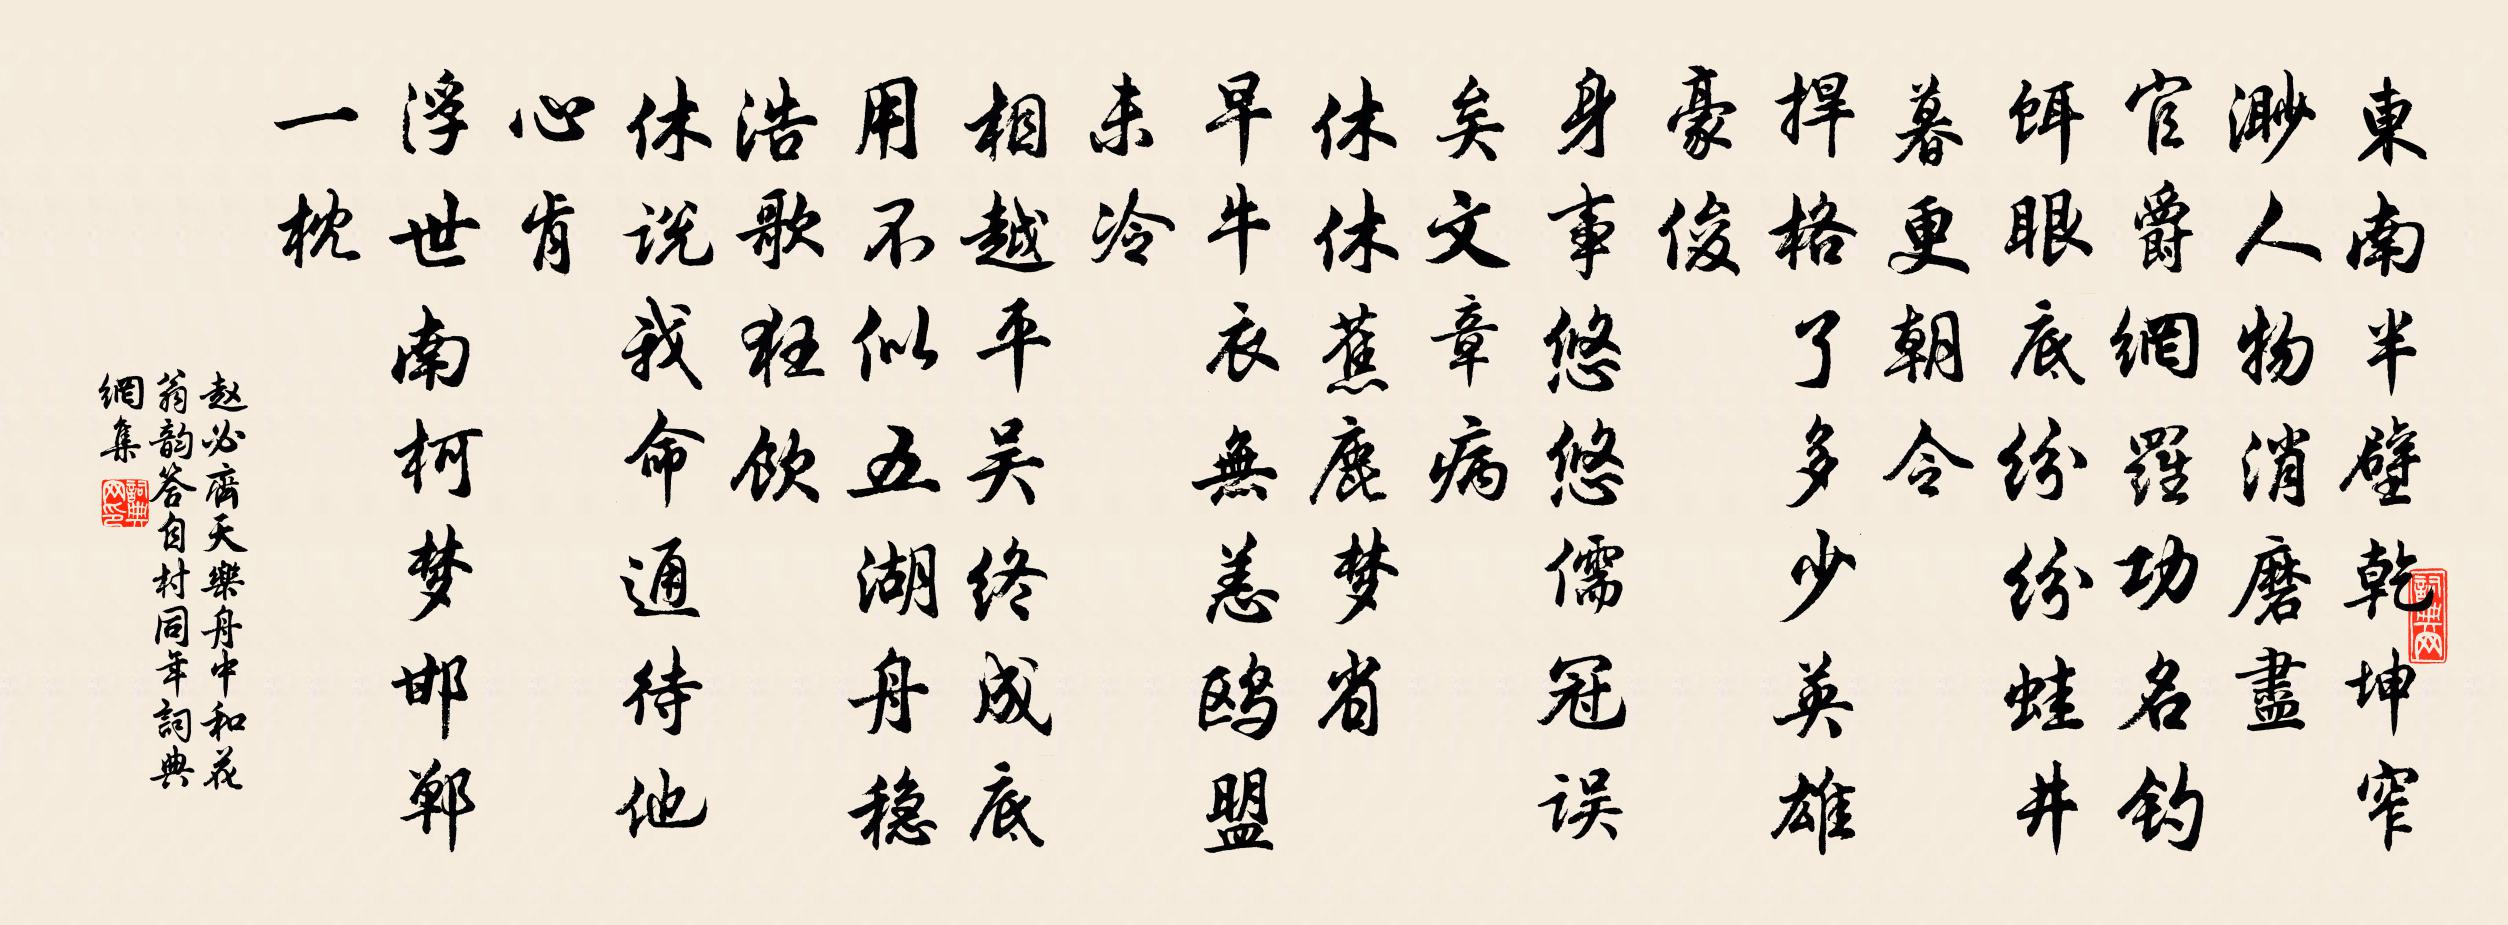 東南半壁乾坤窄
渺人物消磨盡
官爵網羅功名釣
餌眼底紛紛蛙井
暮更朝令
捍格了多少英雄
豪俊
身事悠悠儒冠误
矣文章病
休休蕉鹿梦省
早牛衣無恙鸥盟
未冷
相越平吴终成底
用不似五湖舟穏
浩歌狂飲
休说我命通待他
心肯
浮世南柯梦邯鄲
一枕
赵必瘠天樂舟中和花
翁韵答自村同年詞典
網集
詞典网
詞典网印